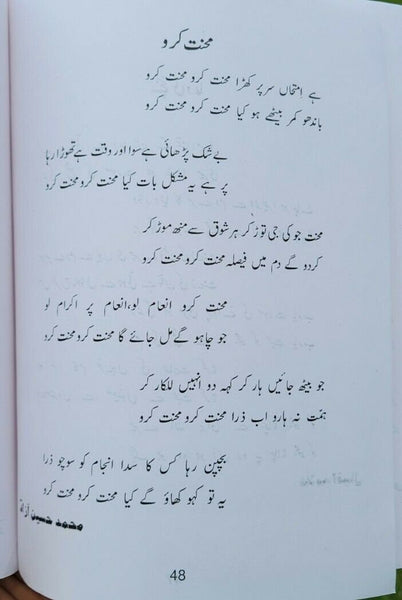 محنت کرو
ہے امتحاں سر پر کھڑا محنت کرو محنت کرو
باندھو کمر بیٹھے ہو کیا محنت کرو محنت کرو
بے شک پڑھائی ہے سوا اور وقت ہے تھوڑا رہا
پر ہے یہ مشکل بات کیا محنت کرو محنت کرو
محنت جو کی جی توڑ کر ہر شوق سے منھ موڑ کر
کردو گے دم میں فیصلہ محنت کرو محنت کرو
محنت کرو انعام لو، انعام پر اکرام لو
جو چاہو گے مل جائے گا محنت کرو محنت کرو
جو بیٹھ جائیں ہار کر کہہ دو انہیں للکار کر
ہمّت نہ ہارو اب ذرا محنت کرو محنت کرو
بچپن رہا کس کا سدا انجام کو سوچو ذرا
یہ تو کہو کھاؤ گے کیا محنت کرو محنت کرو
محمد حسین آزاد
48